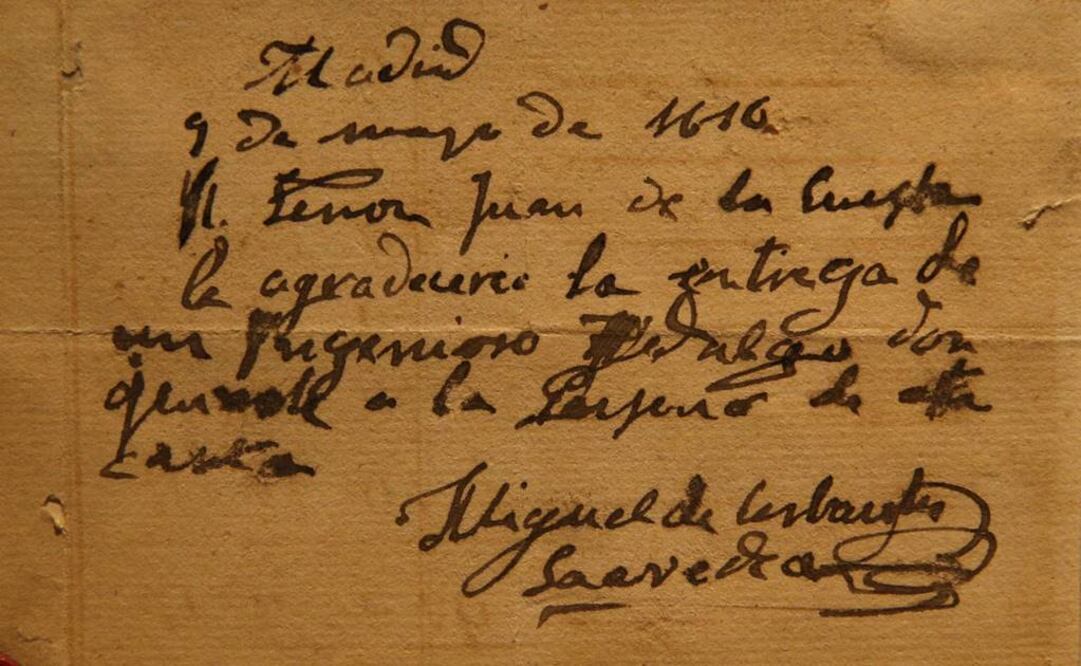 Madrid
9 de mayo de 1616
Sr. Señor Juan de la Cuesta
le agradeceria la entrega de
un Ingenioso Hidalgo don
quixote a la Persona de esta
carta
Miguel de Cerbantes
Saavedra